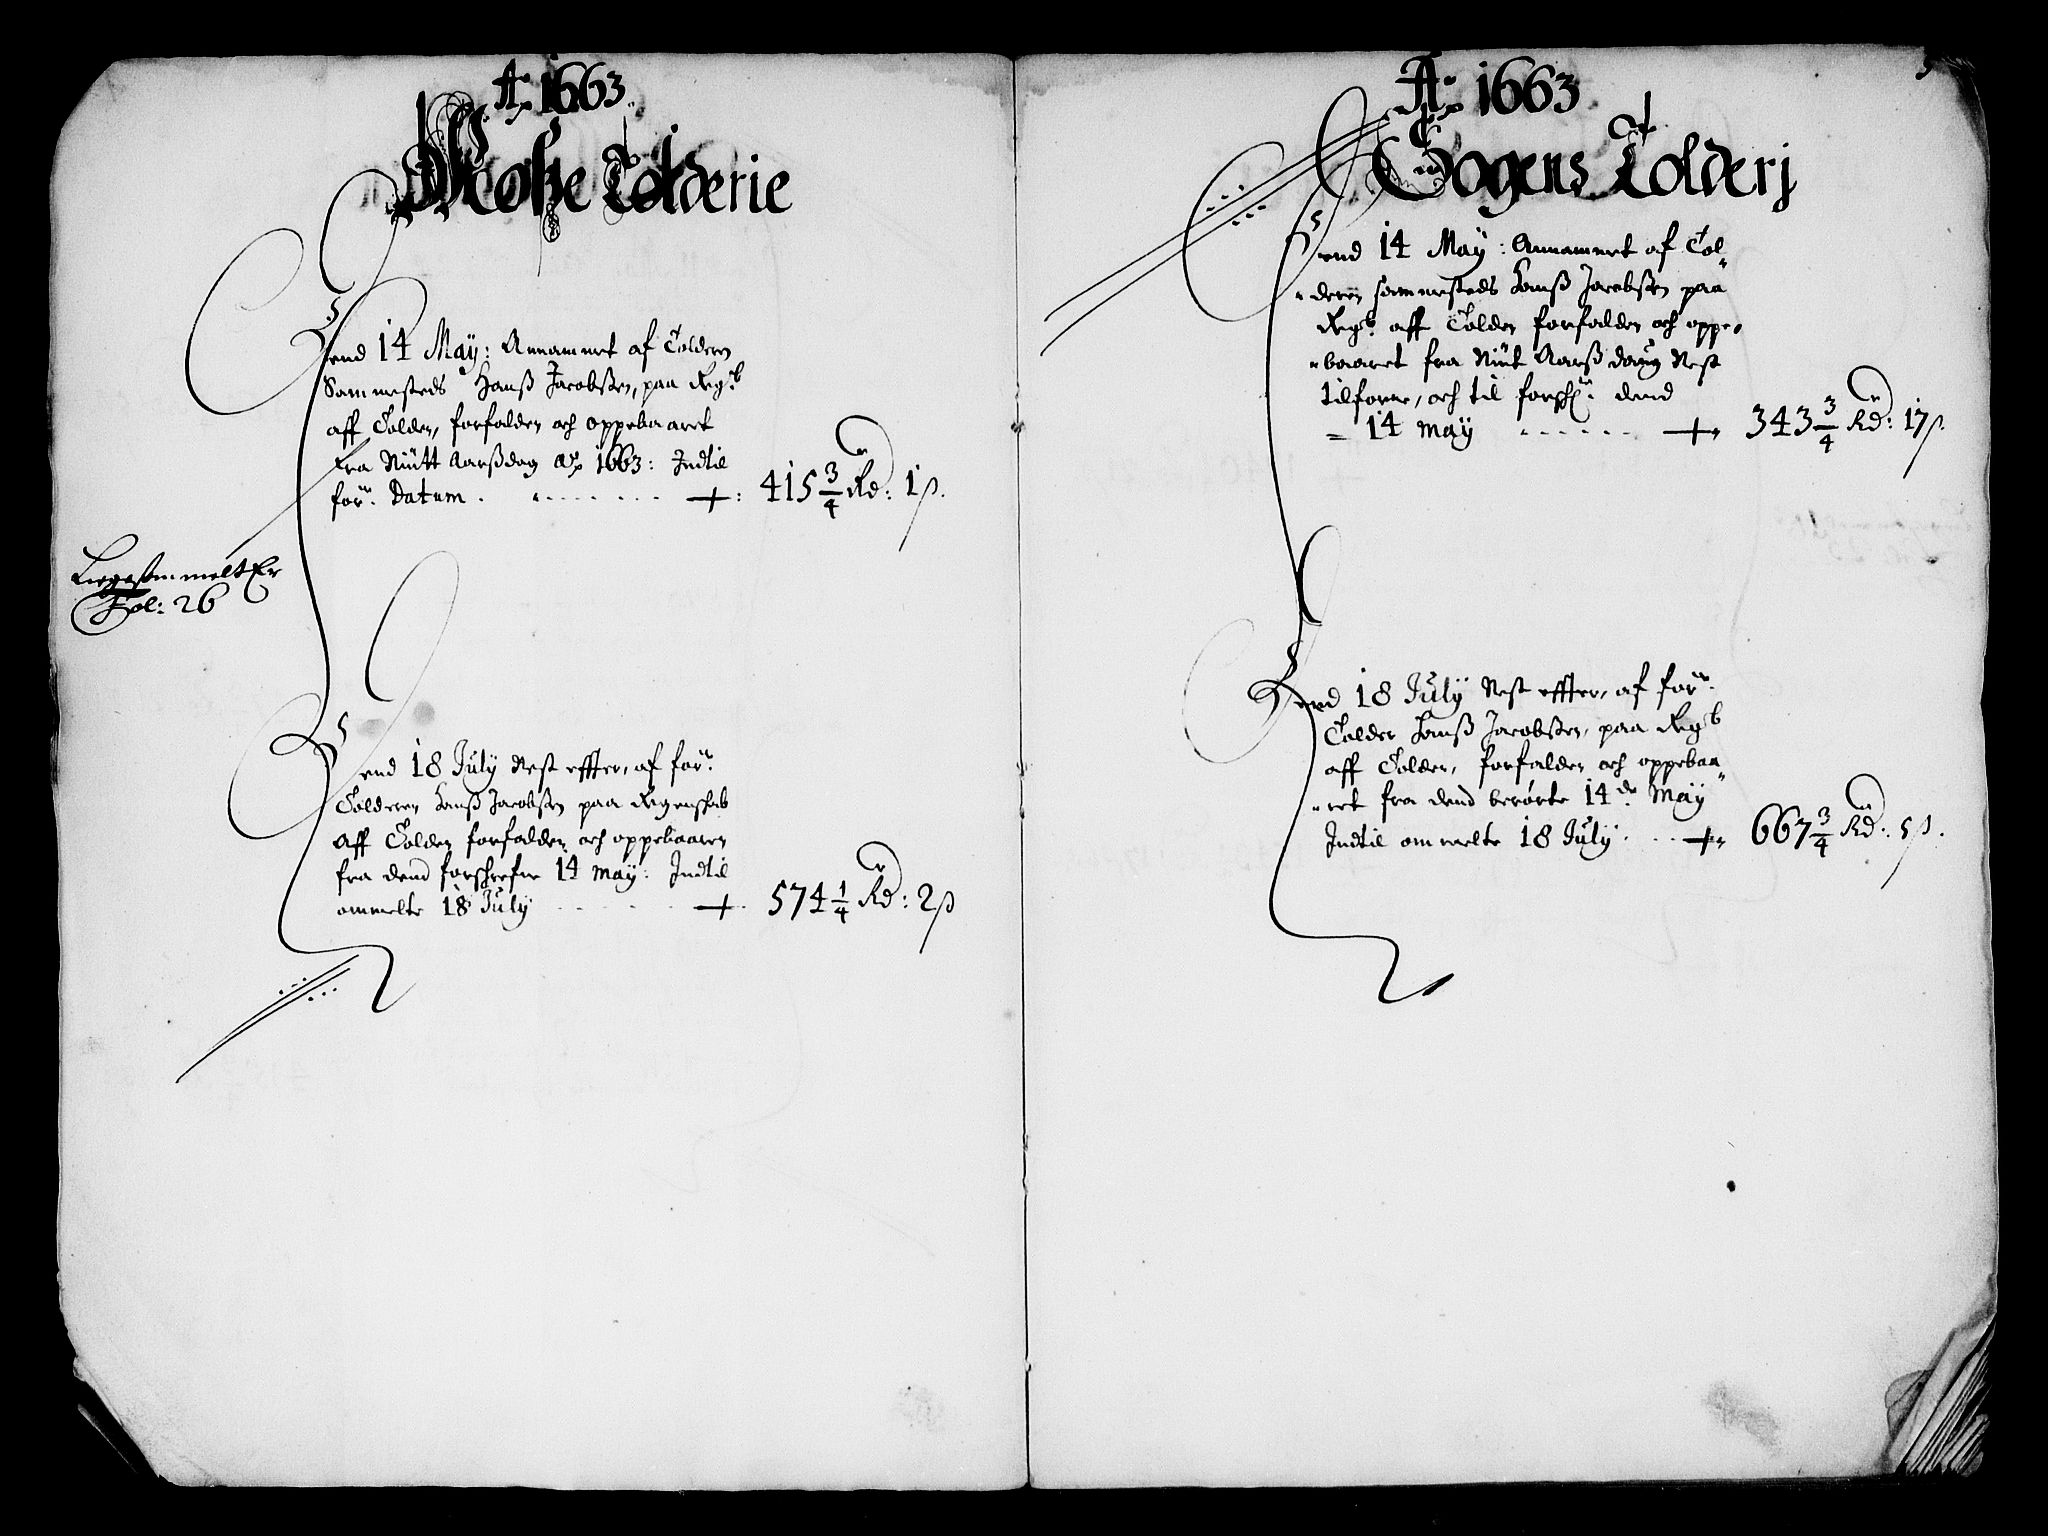 Ao 1663
Moße Tolderie
Dend 14 May: Annammet af Tolderen
Sammesteds Hanß Jacobßen, paa Regsb
aff Tolden, forfalden och oppebaaret
fra Niütt Aarßdag Ao 1663: Indtil
forne. Datum . - - - - - + : 415 3/4 Rd: 1 ß.
Fol: 26
Dend 18 July Nest effter, af forne
Tolderen Hanß Jacobßen paa Regenskab
Aff Tolden forfalden och oppebaaren
fra dend forschrefne 14 May: Indtil
ommelte 18 July - - - - - + 574 1/4 Rd: 2 ß
5
Ao 1663
Sogens Tolderj
Dend 14 May: Annammet af Tol-
deren sammesteds Hanß Jacobßen paa
Regsb. aff Tolden forfalden och oppe-
baaret fra Niüt Aarß daug Nest
tilforne, och til forschr: dend
14 May - - - - - + 343 3/4 Rd: 17 ß.
Dend 18 July Nest effter, af forne
Tolder Hanß Jacobßen, paa Regsb
aff Tolden, forfalden och oppebaa
ret fra dend berørte 14de May
Indtil ommelte 18 July. - - + 667 3/4 Rd: 5 ß.